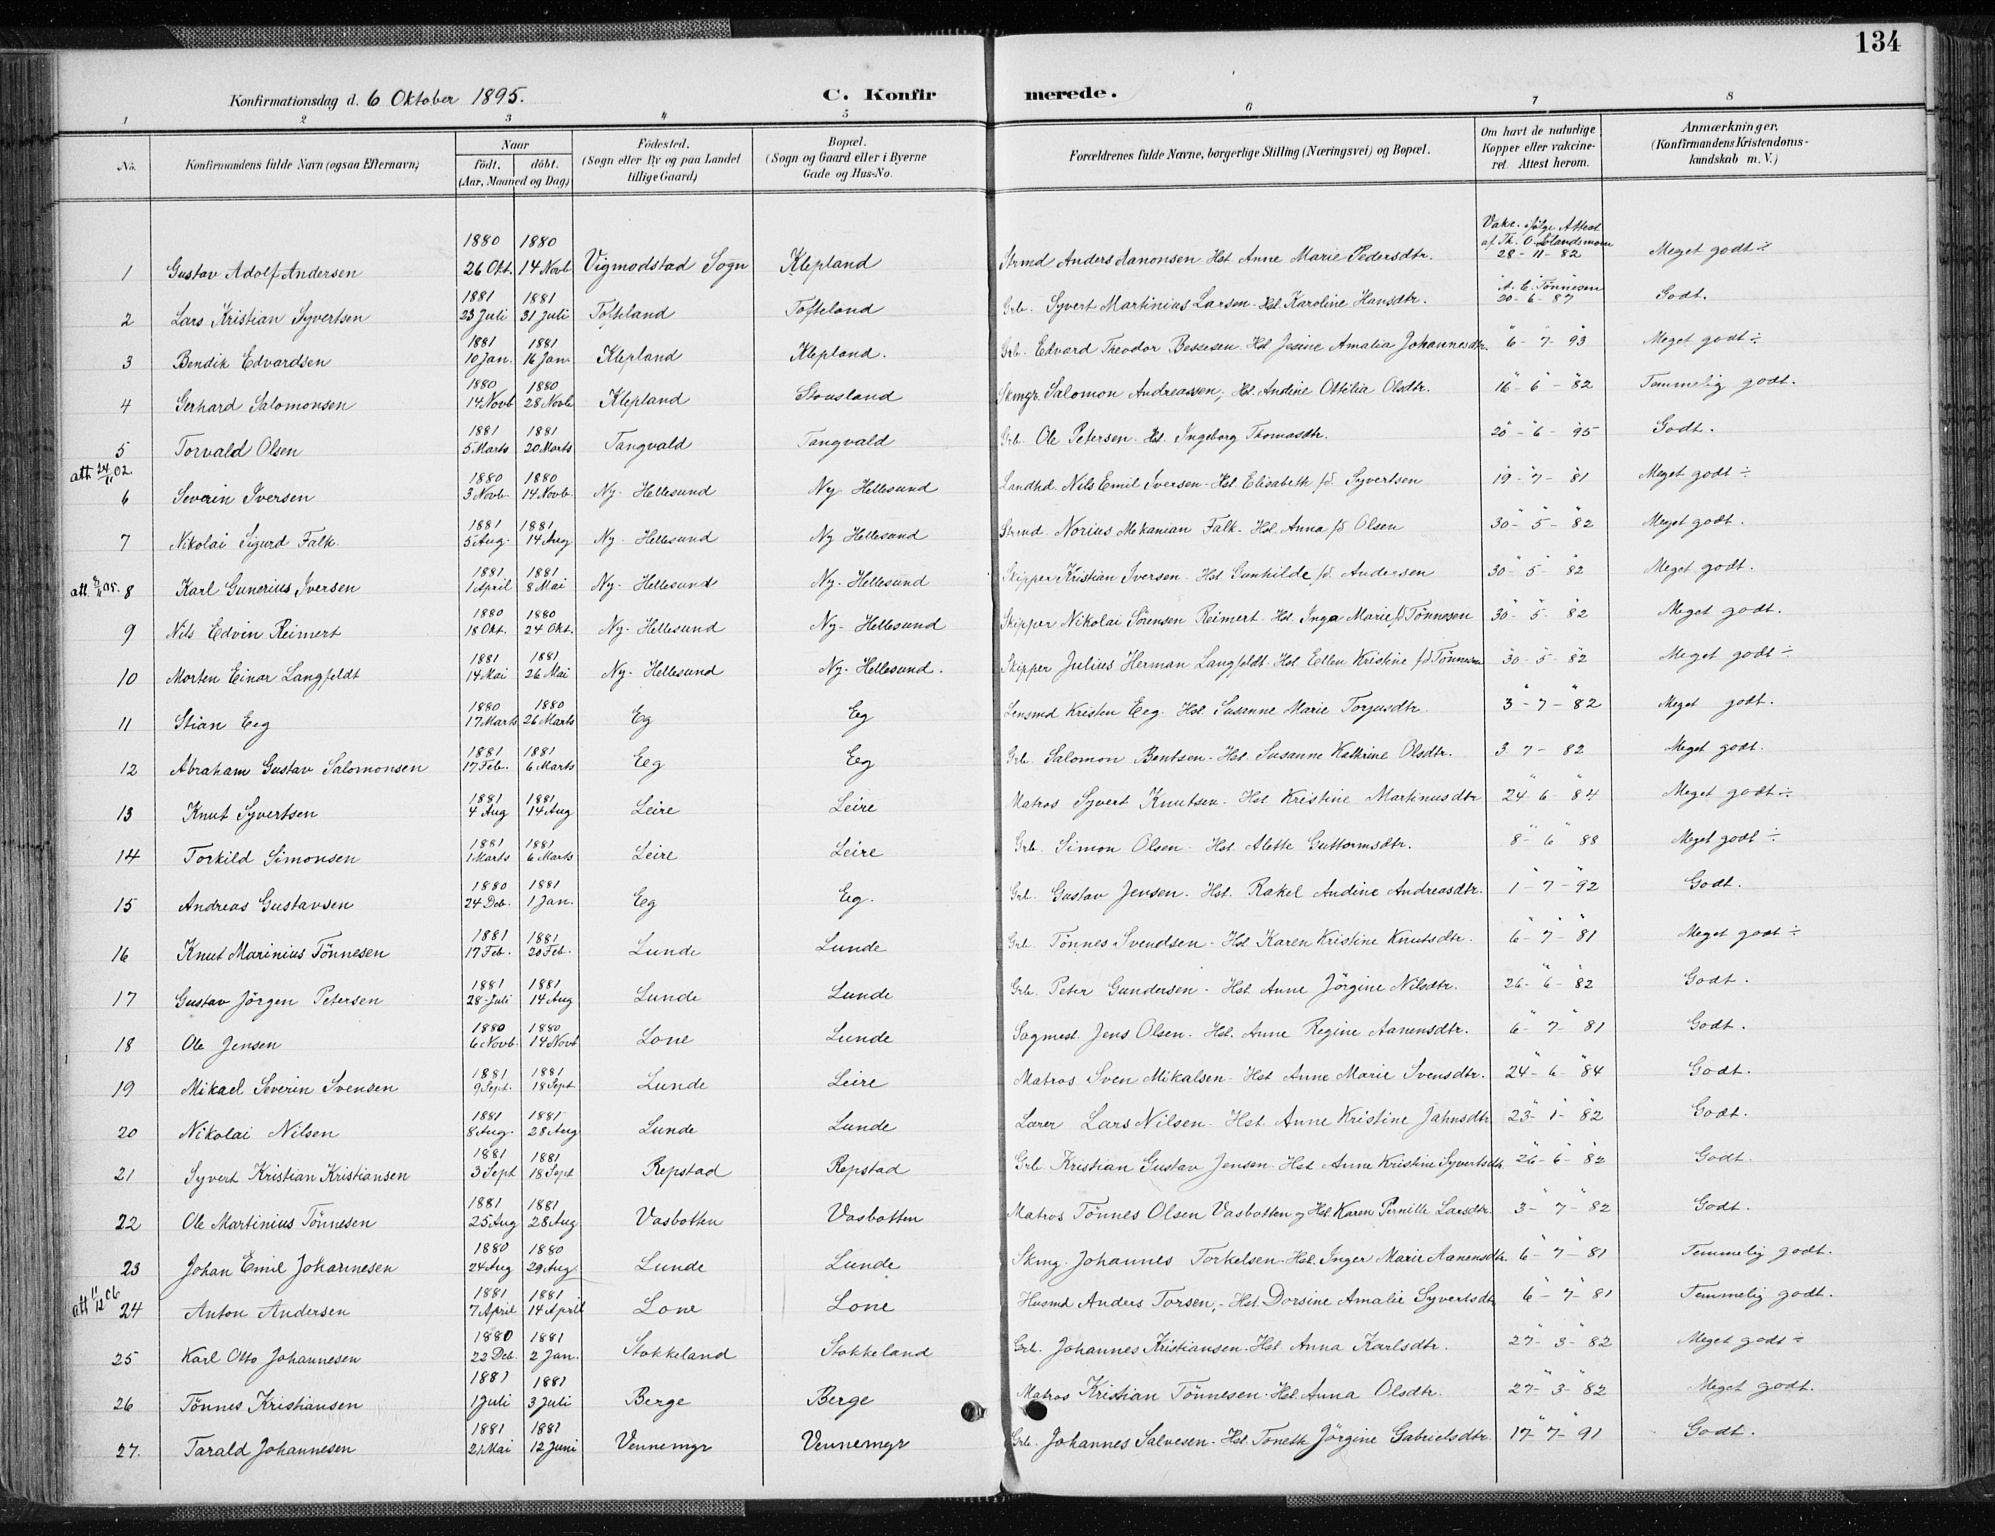 134
Konfirmationsdag d. 6 Oktober 1895. C. Konfirmerede.
1 2 3 4 5 6 7 8
No. Konfirmandens fulde Navn (ogsaa Efternavn) Naar født, døbt. (Aar, Maaned og Dag) Fødested. (Sogn eller By og paa Landet tillige Gaard) Bopæl. (Sogn og Gaard eller i Byerne Gade og Hus-No. Forældrenes fulde Navne, borgerlige Stilling (Næringsvei) og Bopæl. Om havt de naturlige Kopper eller vakcineret. Attest herom. Anmærkninger. (Konfirmandens Kristendomskundskab m. V.)
1 Gustav Adolf Andersen 1880 26 Okt. 1880 14 Novb Vigmodstad Sogn Klepland Strmd Anders Aanonsen Hst Anne Marie Pedersdtr. Vakc. ifølge Attest af Th. O. 28-11-82 Meget godt ÷
2 Lars Kristian Syvertsen 1881 23 Juli 1881 31 Juli Tofteland Tofteland Grb. Syvert Martinius Larsen Hst Karoline Hansdtr. A. C. Tönnesen 20-6-87 Godt.
3 Bendik Edvardsen 1881 10 Jan. 1881 16 Jan. Klepland Klepland. Grb. Edvard Theodor Bessesen Hst Jesine Amalia Johannesdtr. " 6-7-93 Meget godt ÷
4 Gerhard Salomonsen 1880 14 Novb 1880 28 Novb Klepland Stousland Skmgr. Salomon Andreassen, Hst. Andine Ottilia Olsdtr. 16-6-82 Temmelig godt.
5 Torvald Olsen 1881 5 Marts 1881 20 Marts Tangvald Tangvald Grb. Ole Petersen Hst. Ingeborg Thomasdtr. 20-6-95 Godt.
att. 24/11 02
6 Severin Iversen 1880 3 Novb. 1880 14 Novb. Ny-Hellesund Ny Hellesund Landhd. Nils Emil Iversen Hst. Elisabeth fd. Syvertsen 19-7-81 Meget godt ÷
7 Nikolai Sigurd Falk. 1881 5 Aug. 1881 14 Aug Ny-Hellesund Ny Hellesund Strmd Norius Mekanian Falk - Hst Anna fd Olsen 30-5-82 Meget godt.
att.
8 Karl Gunerius Iversen 1881 1 April 1881 8 Mai Ny-Hellesund Ny-Hellesund Skipper Kristian Iversen - Hst Gunhilde fd. Andersen 30-5-82 Meget godt.
9 Nils Edvin Reimert 1880 18 Okt. 1880 24 Okt. Ny-Hellesund Ny-Hellesund Skipper Nikolai Sörensen Reimert - Hst. Inga Marie fd Tönnesen 30-5-82 Meget godt.
10 Morten Einar Langfeldt 1881 14 Mai 1881 26 Mai Ny-Hellesund Ny-Hellesund. Skipper Julius Herman Langfeldt - Hst Ellen Kristine fd Tönnesen 30-5-82 Meget godt ÷
11 Stian Eeg 1880 17 Marts 1880 26 Marts Eg Eg Lensmd Kristen Eeg. Hst. Susanne Marie Torjusdtr. 3-7-82 Meget godt.
12 Abraham Gustav Salomonsen 1881 17 Feb. 1881 6 Marts Eeg Eg Grb. Salomon Bentsen - Hst. Susanne Kathrine Olsdtr. 3 7-82 Meget godt.
13 Knut Syvertsen 1881 4 Aug 1881 14 Aug Leire Leire Matros Syvert Knutsen - Hst Kristine Martinusdtr 24-6-84 Meget godt ÷
14 Torkild Simonsen 1881 1 Marts 1881 6 Marts Leire Leire Grb. Simon Olsen - Hst Alette Guttormsdtr. 8-6 88 Meget godt ÷
15 Andreas Gustavsen 1880 24 Deb. 1881 1 Jan. Eg Eg. Grb. Gustav Jensen. Hst. Rakel Andine Andreasdtr. 1-7-92 Godt.
16 Knut Marinius Tönnesen 1881 17 Feb. 1881 20 Feb. Lunde Lunde Grb Tönnes Svendsen - Hst Karen Kristine Knutsdtr. 6-7-81 Meget godt ÷
17 Gustav Jörgen Petersen 1881 28-Juli 1881 14 Aug Lunde Lunde Grb. Peter Gundersen - Hst Anne Jörgine Nilsdtr. 26-6-82 Godt.
18 Ole Jensen 1880 6 Novb. 1880 14 Novb Lone Lunde Sagmest. Jens Olsen. Hst. Anne Regine Aanensdtr. 6-7-81 Godt.
19 Mikael Severin Svensen 1881 9 Sept. 1881 18 Sept Lunde Leire Matros Sven Mikalsen - Hst Anne Marie Svensdtr. 24-6-84 Godt.
20 Nikolai Nilsen 1881 8 Aug. 1881 28 Aug Lunde Lunde Lærer Lars Nilsen - Hst Anne Kristine Jahnsdtr. 23-1-82 Godt.
21 Syvert Kristian Kristiansen 1881 3 Sept 1881 18 Sept Repstad Repstad Grb. Kristian Gustav Jensen - Hst Anne Kristine Syvertsdtr. 26-6-82 Godt.
22 Ole Martinius Tönnesen 1881 25 Aug 1881 28 Aug Vasbotten Vasbotten Matros Tönnes Olsen Vasbotten og Hst. Karen Pernille Larsdtr. 3-7-82 Godt.
23 Johan Emil Johannesen 1880 24 Aug 1880 29 Aug. Lunde Lunde Skmg. Johannes Torkelsen - Hst. Inger Marie Aanensdtr. 6-7-81 Temmelig godt.
att 11/12 06
24 Anton Andersen 1881 7 April 1881 14 April Lone Lone Husmd Anders Torsen, - Hst. Dorsine Amalie Syvertsdtr 6-7-81 Temmelig godt.
25 Karl Otto Johannesen 1880 22 Deb. 1881 2 Jan. Stokkeland Stokkeland Grb. Johannes Kristiansen - Hst Anna Karlsdtr. 27-3-82 Meget godt ÷
26 Tönnes Kristiansen 1881 1 Juli 1881 3 Juli Berge Berge Matros Kristian Tönnesen - Hst. Anna Olsdtr. 27-3-82 Meget godt.
27. Tarald Johannesen 1881 21 Mai 1881 12 Juni Vennemyr Vennemyr Grb. Johannes Salvesen - Hst Toneth Jörgine Gabrielsdtr. 17-7-91 Godt.